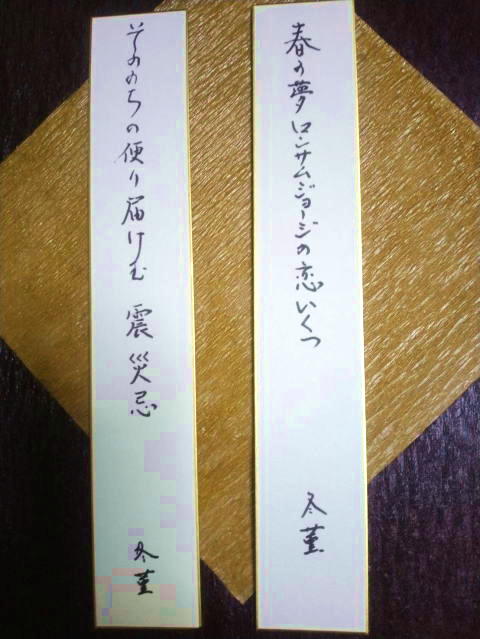 春の夢ロンサムジョージの恋いくつ
冬菫
そののちの便り届けむ 震災忌
冬菫